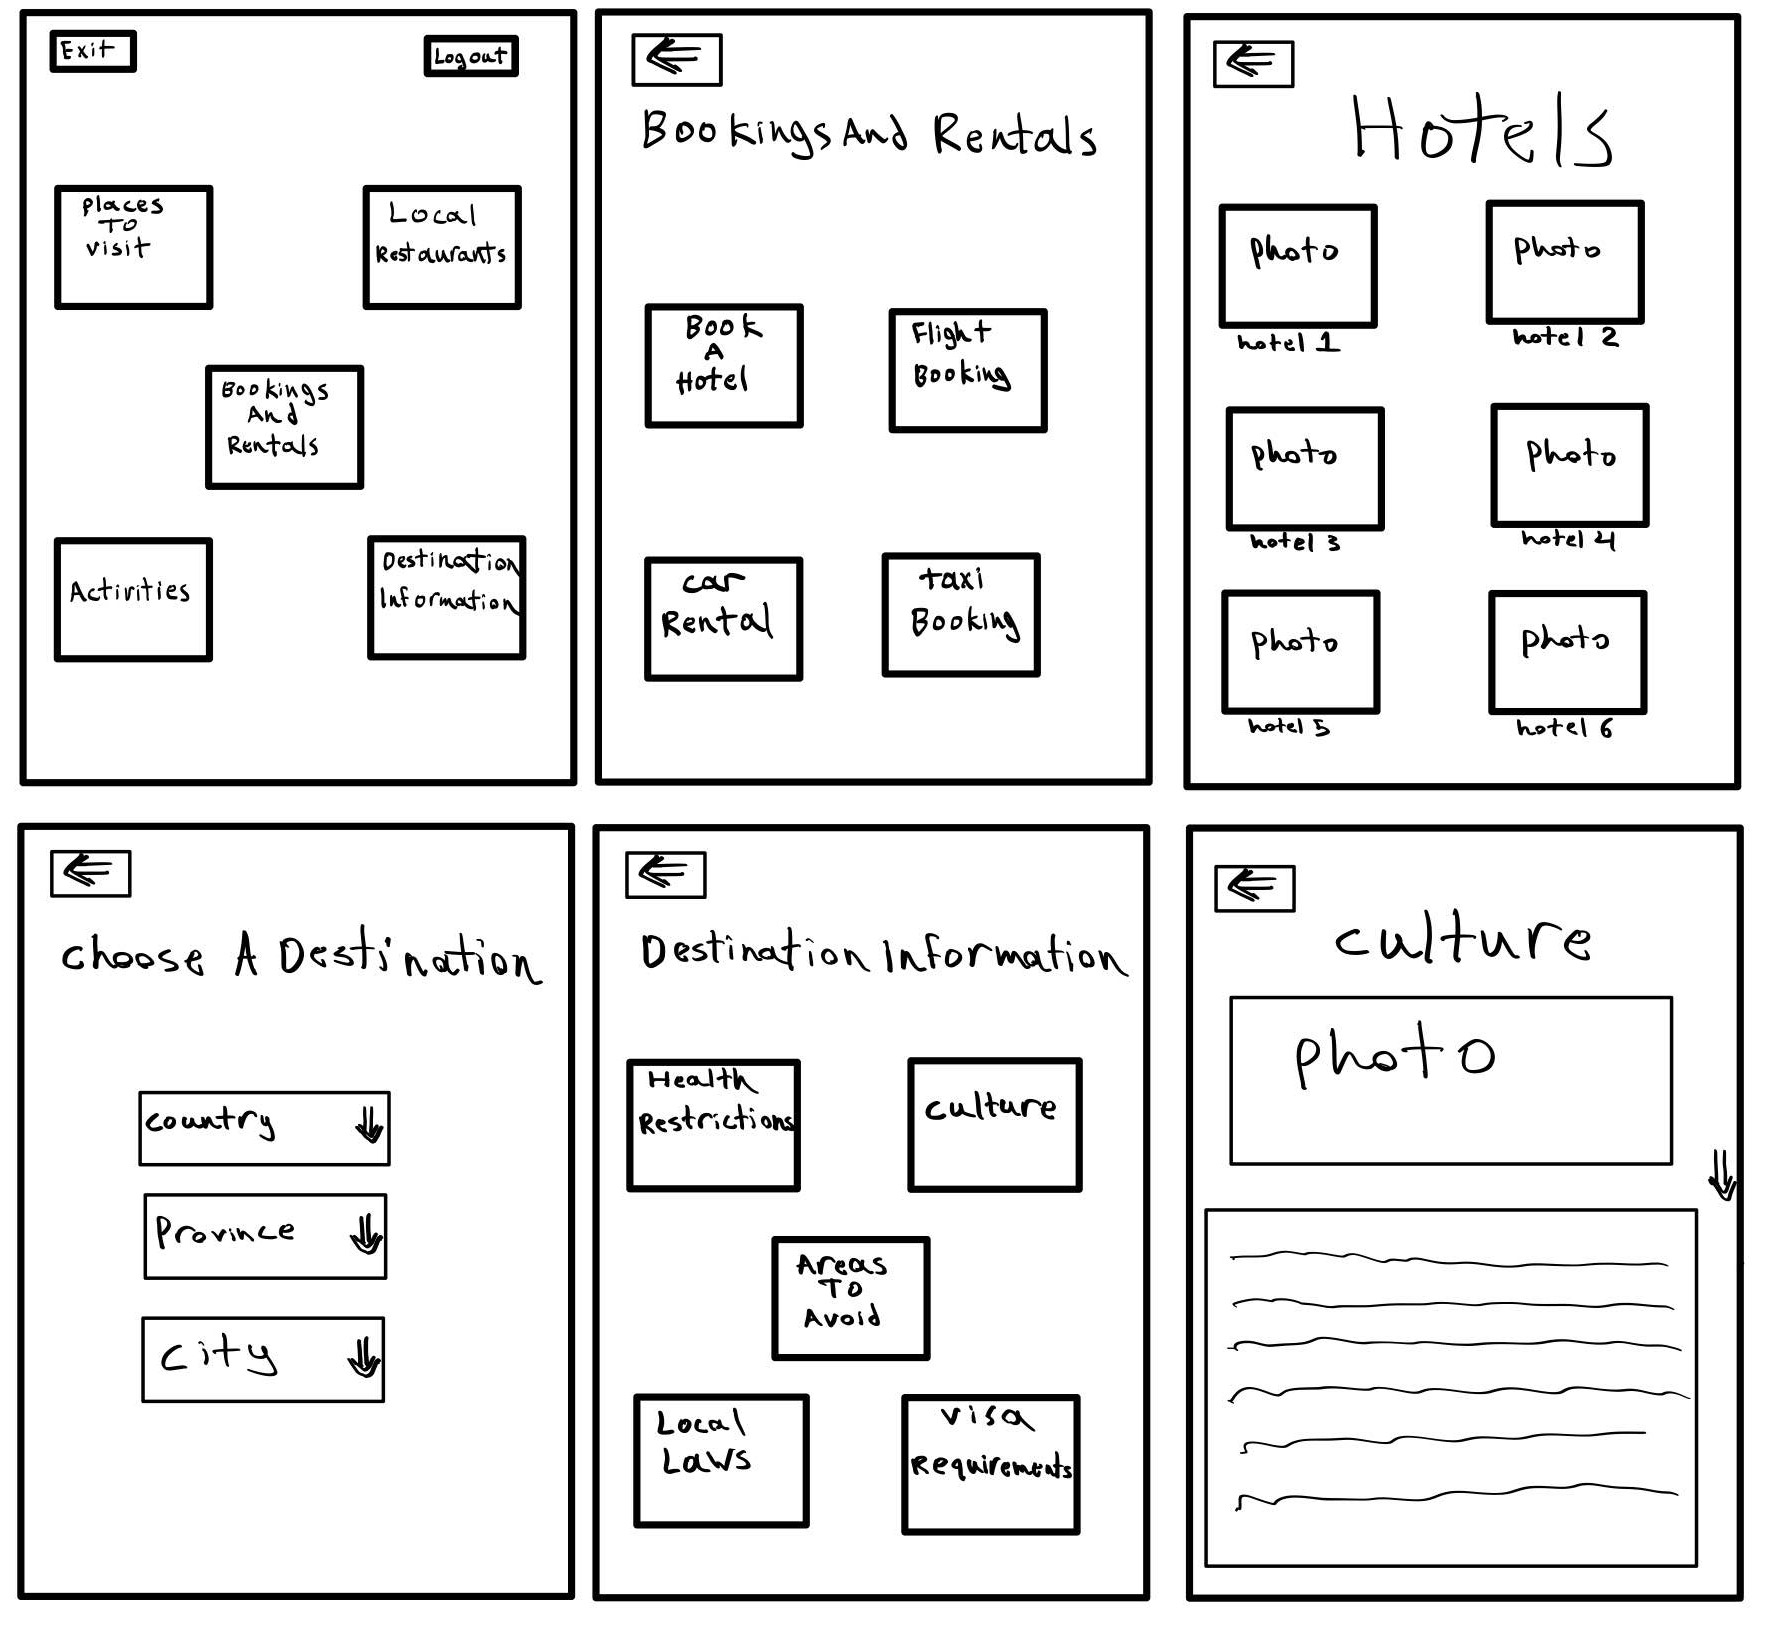 Exit
Logout
places
To
visit
Local
Restaurants
Bookings
And
Rentals
Activities
Destination
Information
Bookings And Rentals
Book
A
Hotel
Flight
Booking
car
Rental
taxi
Booking
Hotels
photo
photo
hotel 1
hotel 2
photo
photo
hotel 3
hotel 4
photo
photo
hotel 5
hotel 6
choose A Destination
country
Province
city
Destination Information
Health
Restrictions
culture
Areas
To
Avoid
Local
Laws
visa
Requirements
culture
photo